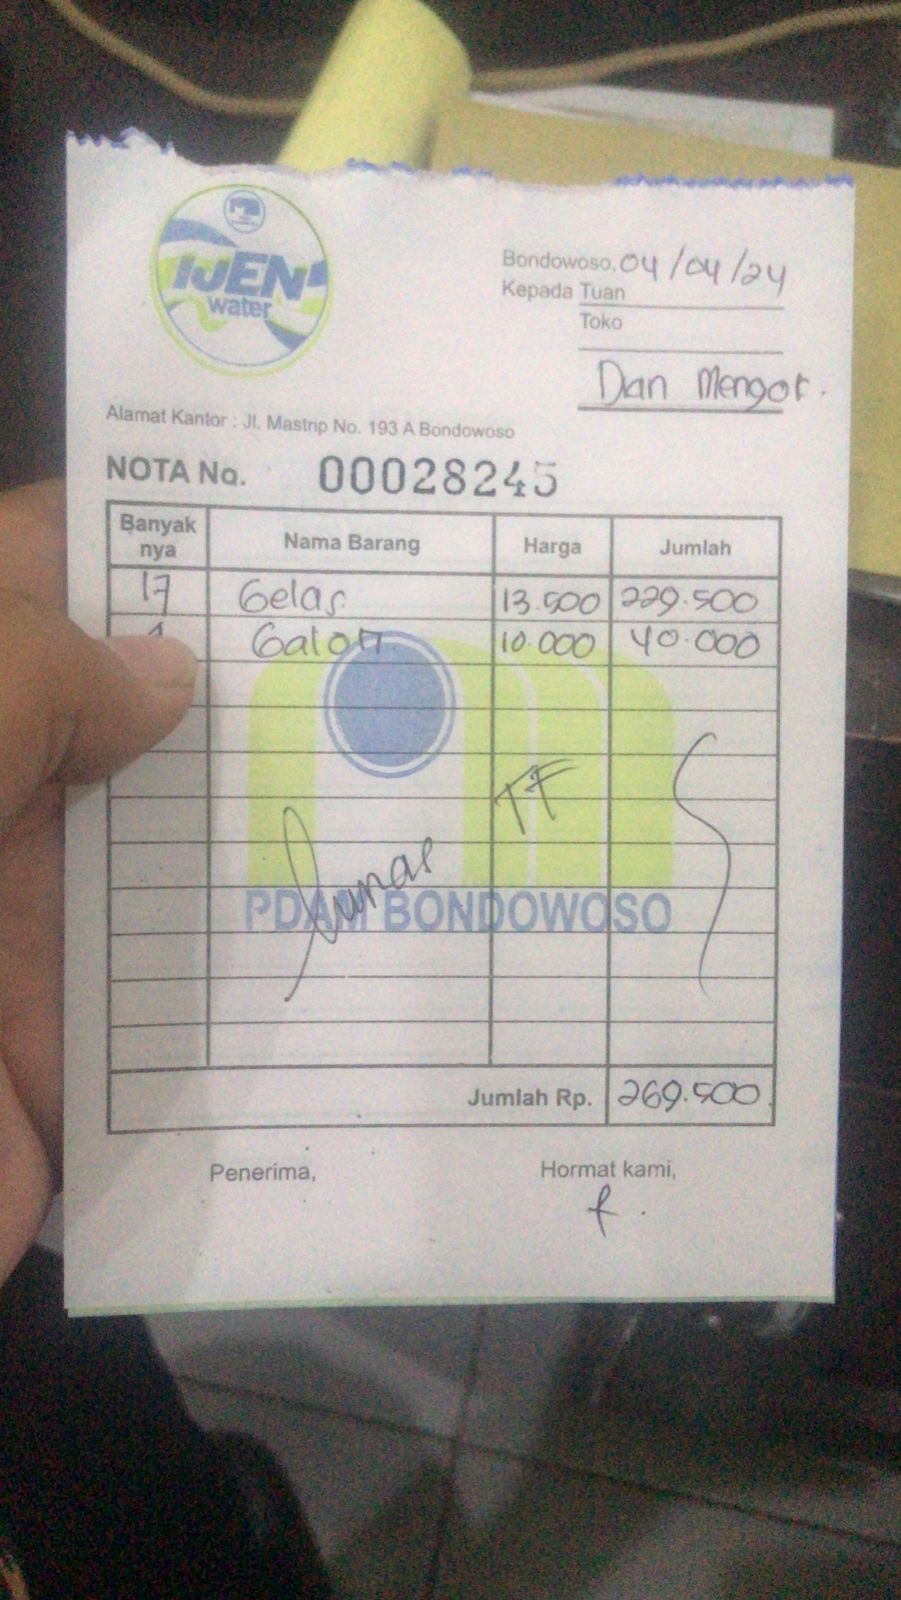 IJEN
water
Bondowoso, 04/04/24
Kepada Tuan
Toko
Dan Mengot.
Alamat Kantor : Jl. Mastrip No. 193 A Bondowoso
NOTA No. 00028245
Banyak nya Nama Barang Harga Jumlah
17 Gelas 13.500 229.500
Galon 10.000 40.000
TF
lunas
PDAM BONDOWOSO
Jumlah Rp. 269.500
Penerima, Hormat kami,